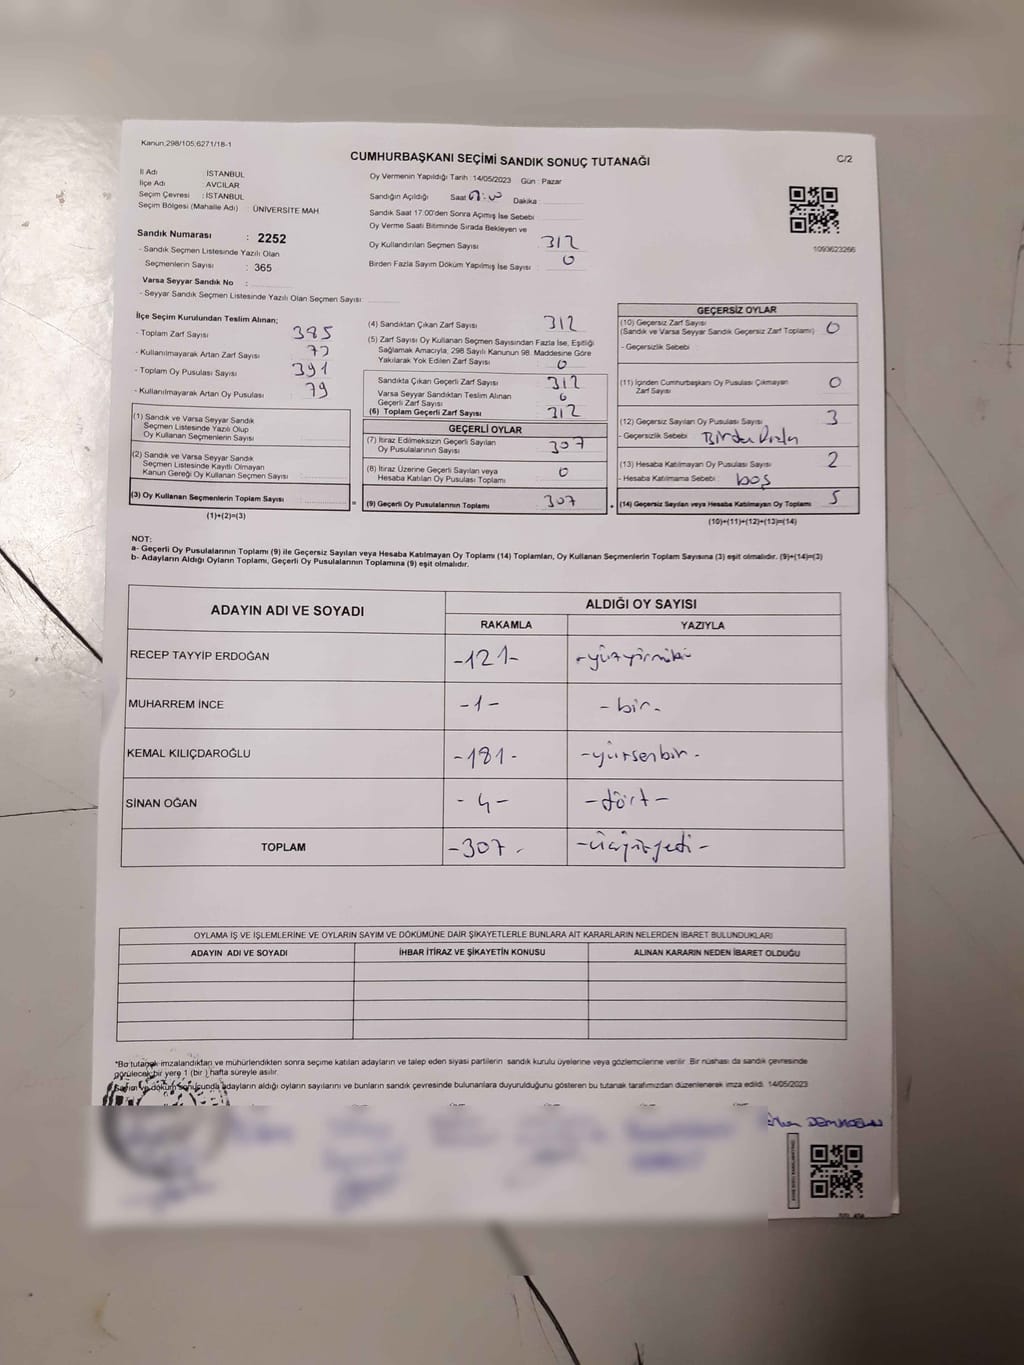 Kanun,298/105;6271/18-1
CUMHURBAŞKANI SEÇİMİ SANDIK SONUÇ TUTANAĞI
C/2
İl Adı : İSTANBUL
İlçe Adı : AVCILAR
Seçim Çevresi : İSTANBUL
Seçim Bölgesi (Mahalle Adı) : ÜNİVERSİTE MAH
Sandık Numarası : 2252
- Sandık Seçmen Listesinde Yazılı Olan
Seçmenlerin Sayısı : 365
Varsa Seyyar Sandık No :
- Seyyar Sandık Seçmen Listesinde Yazılı Olan Seçmen Sayısı:
Oy Vermenin Yapıldığı Tarih :14/05/2023 Gün : Pazar
Sandığın Açıldığı Saat Dakika :
Sandık Saat 17:00'den Sonra Açımış İse Sebebi :
Oy Verme Saati Bitiminde Sırada Bekleyen ve
Oy Kullandırılan Seçmen Sayısı : 312
Birden Fazla Sayım Döküm Yapılmış İse Sayısı : 0
1093623266
İlçe Seçim Kurulundan Teslim Alınan;
- Toplam Zarf Sayısı 385
- Kullanılmayarak Artan Zarf Sayısı 73
- Toplam Oy Pusulası Sayısı 391
- Kullanılmayarak Artan Oy Pusulası 79
(1) Sandık ve Varsa Seyyar Sandık
Seçmen Listesinde Yazılı Olup
Oy Kullanan Seçmenlerin Sayısı
(2) Sandık ve Varsa Seyyar Sandık
Seçmen Listesinde Kayıtlı Olmayan
Kanun Gereği Oy Kullanan Seçmen Sayısı :
(3) Oy Kullanan Seçmenlerin Toplam Sayısı =
(1)+(2)=(3)
(4) Sandıktan Çıkan Zarf Sayısı 312
(5) Zarf Sayısı Oy Kullanan Seçmen Sayısından Fazla İse, Eşitliği
Sağlamak Amacıyla; 298 Sayılı Kanunun 98. Maddesine Göre
Yakılarak Yok Edilen Zarf Sayısı : 0
Sandıkta Çıkan Geçerli Zarf Sayısı 312
Varsa Seyyar Sandıktan Teslim Alınan
Geçerli Zarf Sayısı 0
(6) Toplam Geçerli Zarf Sayısı 312
GEÇERLİ OYLAR
(7) İtiraz Edilmeksizin Geçerli Sayılan
Oy Pusulasının Sayısı 307
(8) İtiraz Üzerine Geçerli Sayılan veya
Hesaba Katılan Oy Pusulası Toplamı 0
(9) Geçerli Oy Pusulalarının Toplamı 307 +
GEÇERSİZ OYLAR
(10) Geçersiz Zarf Sayısı
(Sandık ve Varsa Seyyar Sandık Geçersiz Zarf Toplamı) 0
- Geçersizlik Sebebi :
(11) İçinden Cumhurbaşkanı Oy Pusulası Çıkmayan
Zarf Sayısı 0
(12) Geçersiz Sayılan Oy Pusulası Sayısı 3
- Geçersizlik Sebebi : Birden Fazla
(13) Hesaba Katılmayan Oy Pusulası Sayısı 2
- Hesaba Katılmama Sebebi : boş
(14) Geçersiz Sayılan veya Hesaba Katılmayan Oy Toplamı 5
(10)+(11)+(12)+(13)=(14)
NOT:
a- Geçerli Oy Pusulalarının Toplamı (9) ile Geçersiz Sayılan veya Hesaba Katılmayan Oy Toplamı (14) Toplamları, Oy Kullanan Seçmenlerin Toplam Sayısına (3) eşit olmalıdır. (9)+(14)=(3)
b- Adayların Aldığı Oyların Toplamı, Geçerli Oy Pusulalarının Toplamına (9) eşit olmalıdır.
ADAYIN ADI VE SOYADI
ALDIĞI OY SAYISI
RAKAMLA YAZIYLA
RECEP TAYYİP ERDOĞAN -121-
MUHARREM İNCE -1- -bir-
KEMAL KILIÇDAROĞLU -181- -yüzsenbir-
SİNAN OĞAN -4- -dört-
TOPLAM -307- -üçyüzyedi-
OYLAMA İŞ VE İŞLEMLERİNE VE OYLARIN SAYIM VE DÖKÜMÜNE DAİR ŞİKAYETLERLE BUNLARA AİT KARARLARIN NELERDEN İBARET BULUNDUKLARI
ADAYIN ADI VE SOYADI İHBAR İTİRAZ VE ŞİKAYETİN KONUSU ALINAN KARARIN NEDEN İBARET OLDUĞU
*Bu tutanak imzalandıktan ve mühürlendikten sonra seçime katılan adayların ve talep eden siyasi partilerin sandık kurulu üyelerine veya gözlemcilerine verilir. Bir nüshası da sandık çevresinde
görülecek bir yere 1 (bir ) hafta süreyle asılır.
Sayım ve döküm sonucunda adayların aldığı oyların sayılarını ve bunların sandık çevresinde bulunanlara duyurulduğunu gösteren bu tutanak tarafımızdan düzenlenerek imza edildi. 14/05/2023